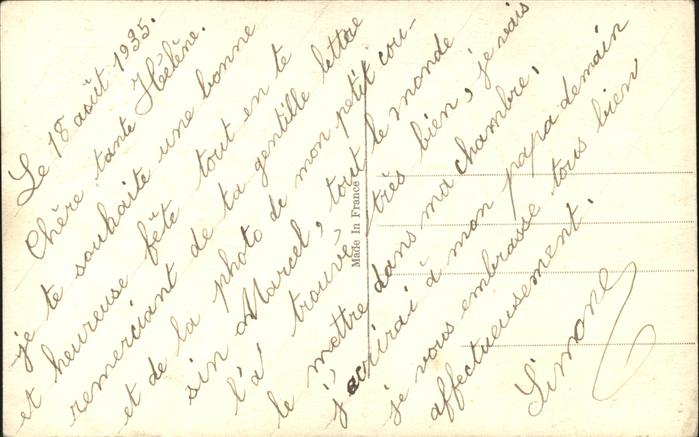 Le 18 août 1935.
Chère tante Hélène.
je te souhaite une bonne
et heureuse fête tout en te
remerciant de ta gentille lettre
et de la photo de mon petit cou-
sin Marcel, tout le monde
l'a trouvé très bien, je vais
le mettre dans ma chambre.
j'ecrirai à mon papa demain
je vous embrasse tous bien
affectueusement.
Simone
Made In France